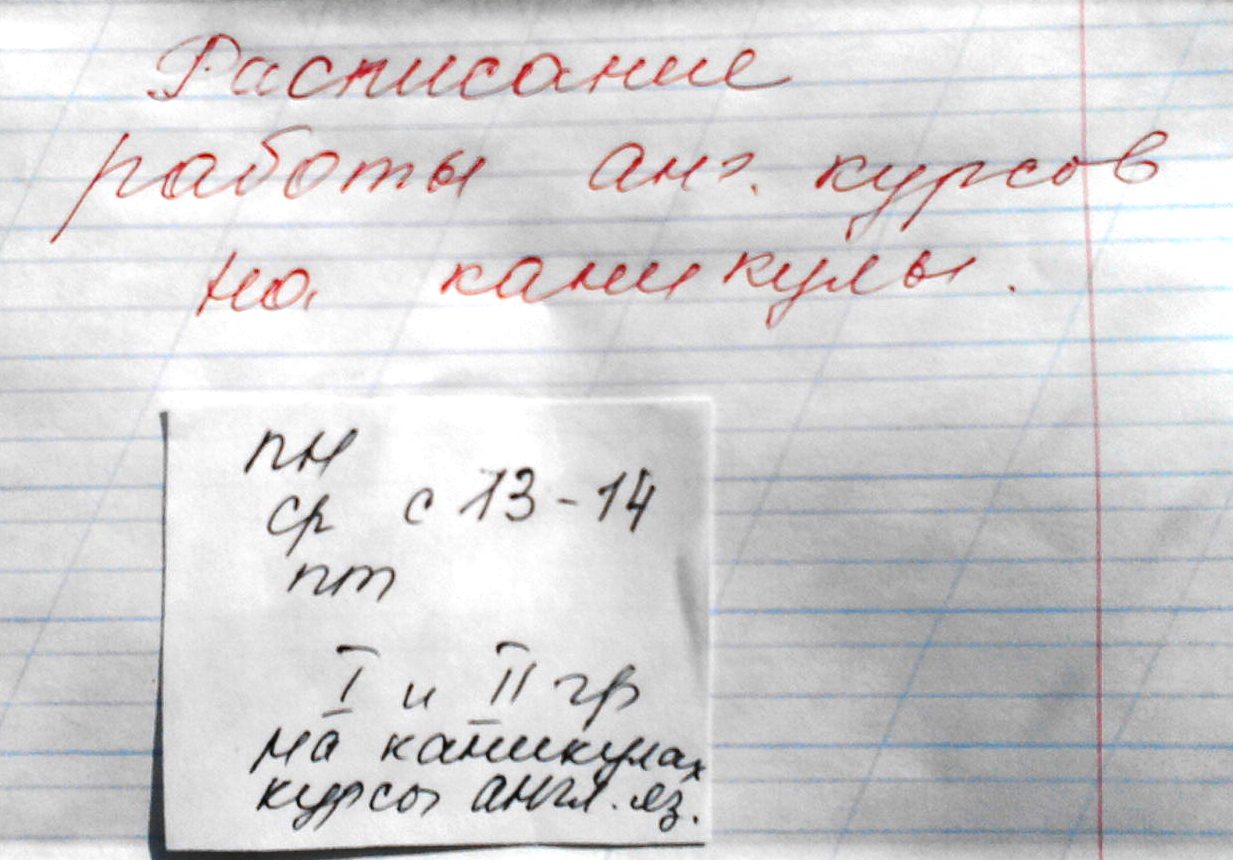 Расписание
работы анг. курсов
на каникулы.
пн
ср с 13-14
пт
I и II гр
на каникулах
курсы англ. яз.